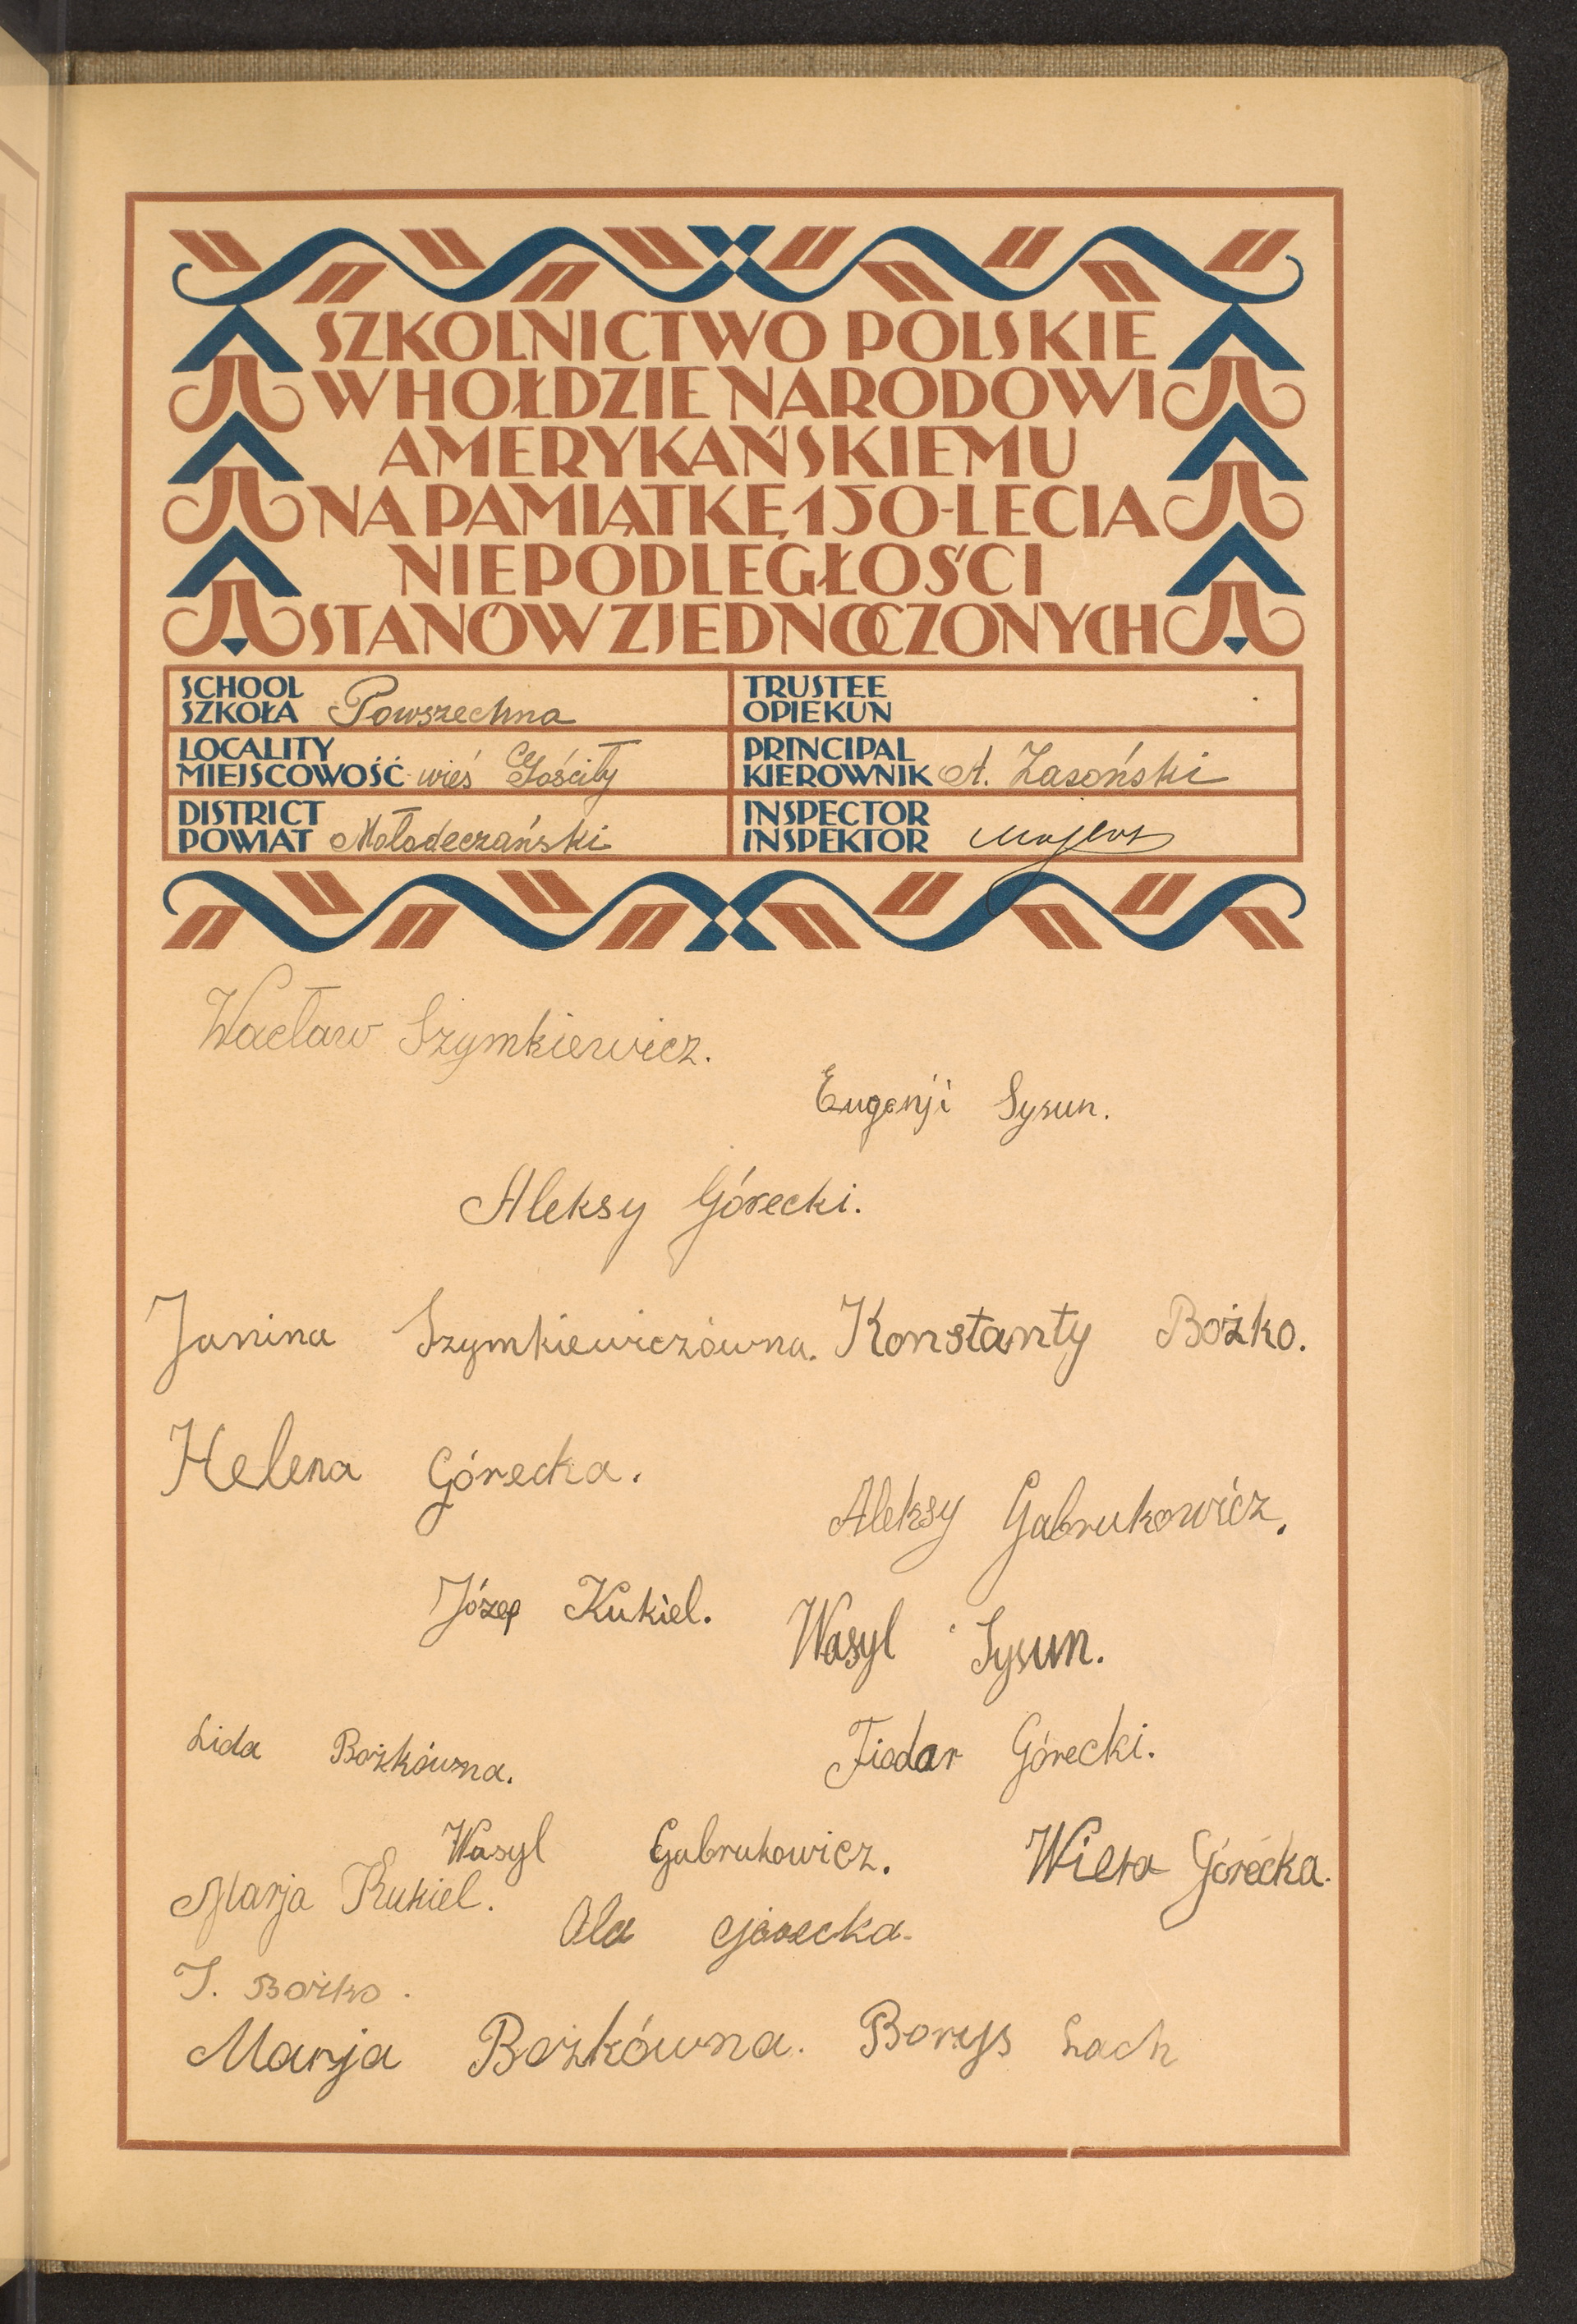 SZKOLNICTWO POLSKIE
W HOŁDZIE NARODOWI
AMERYKAŃSKIEMU
NA PAMIĄTKĘ 150-LECIA
NIEPODLEGŁOŚCI
STANÓW ZJEDNOCZONYCH
SCHOOL
SZKOŁA Powszechna
TRUSTEE
OPIEKUN
LOCALITY
MIEJSCOWOŚĆ wieś Gościły
PRINCIPAL
KIEROWNIK A. Zasoński
DISTRICT
POWIAT Mołodeczański
INSPECTOR
INSPEKTOR
Wacław Szymkiewicz.
Eugenji Sysun.
Aleksy Górecki.
Janina Szymkiewiczówna. Konstanty Bożko.
Helena Górecka.
Aleksy Gabrukowicz.
Józef Kukiel.
Wasyl Sysun.
Lida Bożkówna.
Fiodar Górecki.
Wasyl Gabrukowicz.
Wiera Górecka.
Marja Kukiel.
Ola Górecka.
J. Bożko.
Marja Bożkówna. Borys Łach